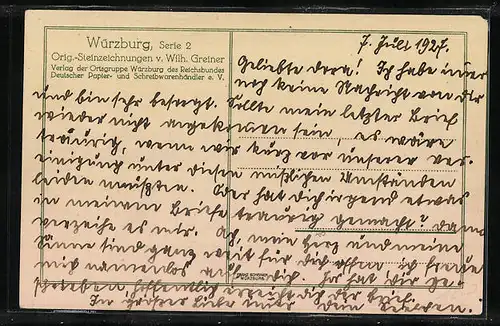 Würzburg, Serie 2
Orig.-Steinzeichnungen v. Wilh. Greiner
Verlag der Ortsgruppe Würzburg des Reichsbundes
Deutscher Papier- und Schreibwarenhändler e. V.
7. Juli 1927.
Geliebte Dora! Ich habe immer
noch keine Nachricht von Dir
und bin sehr besorgt. Sollte mein letzter Brief
wieder nicht angekommen sein, es wäre
traurig, wenn wir kurz vor unserer Ver-
einigung unter diesen mißlichen Umständen
leiden müßten. Oder hat Dich irgend etwas
in meinem Briefe traurig gemacht? Dann
verzeihe es mir. Ach, mein Herz und meine
sind ganz weit für Dich offen ich freue
mich namenlos auf Dich.
schrieben hoffentlich erreicht Dich der Brief.
In großer Liebe